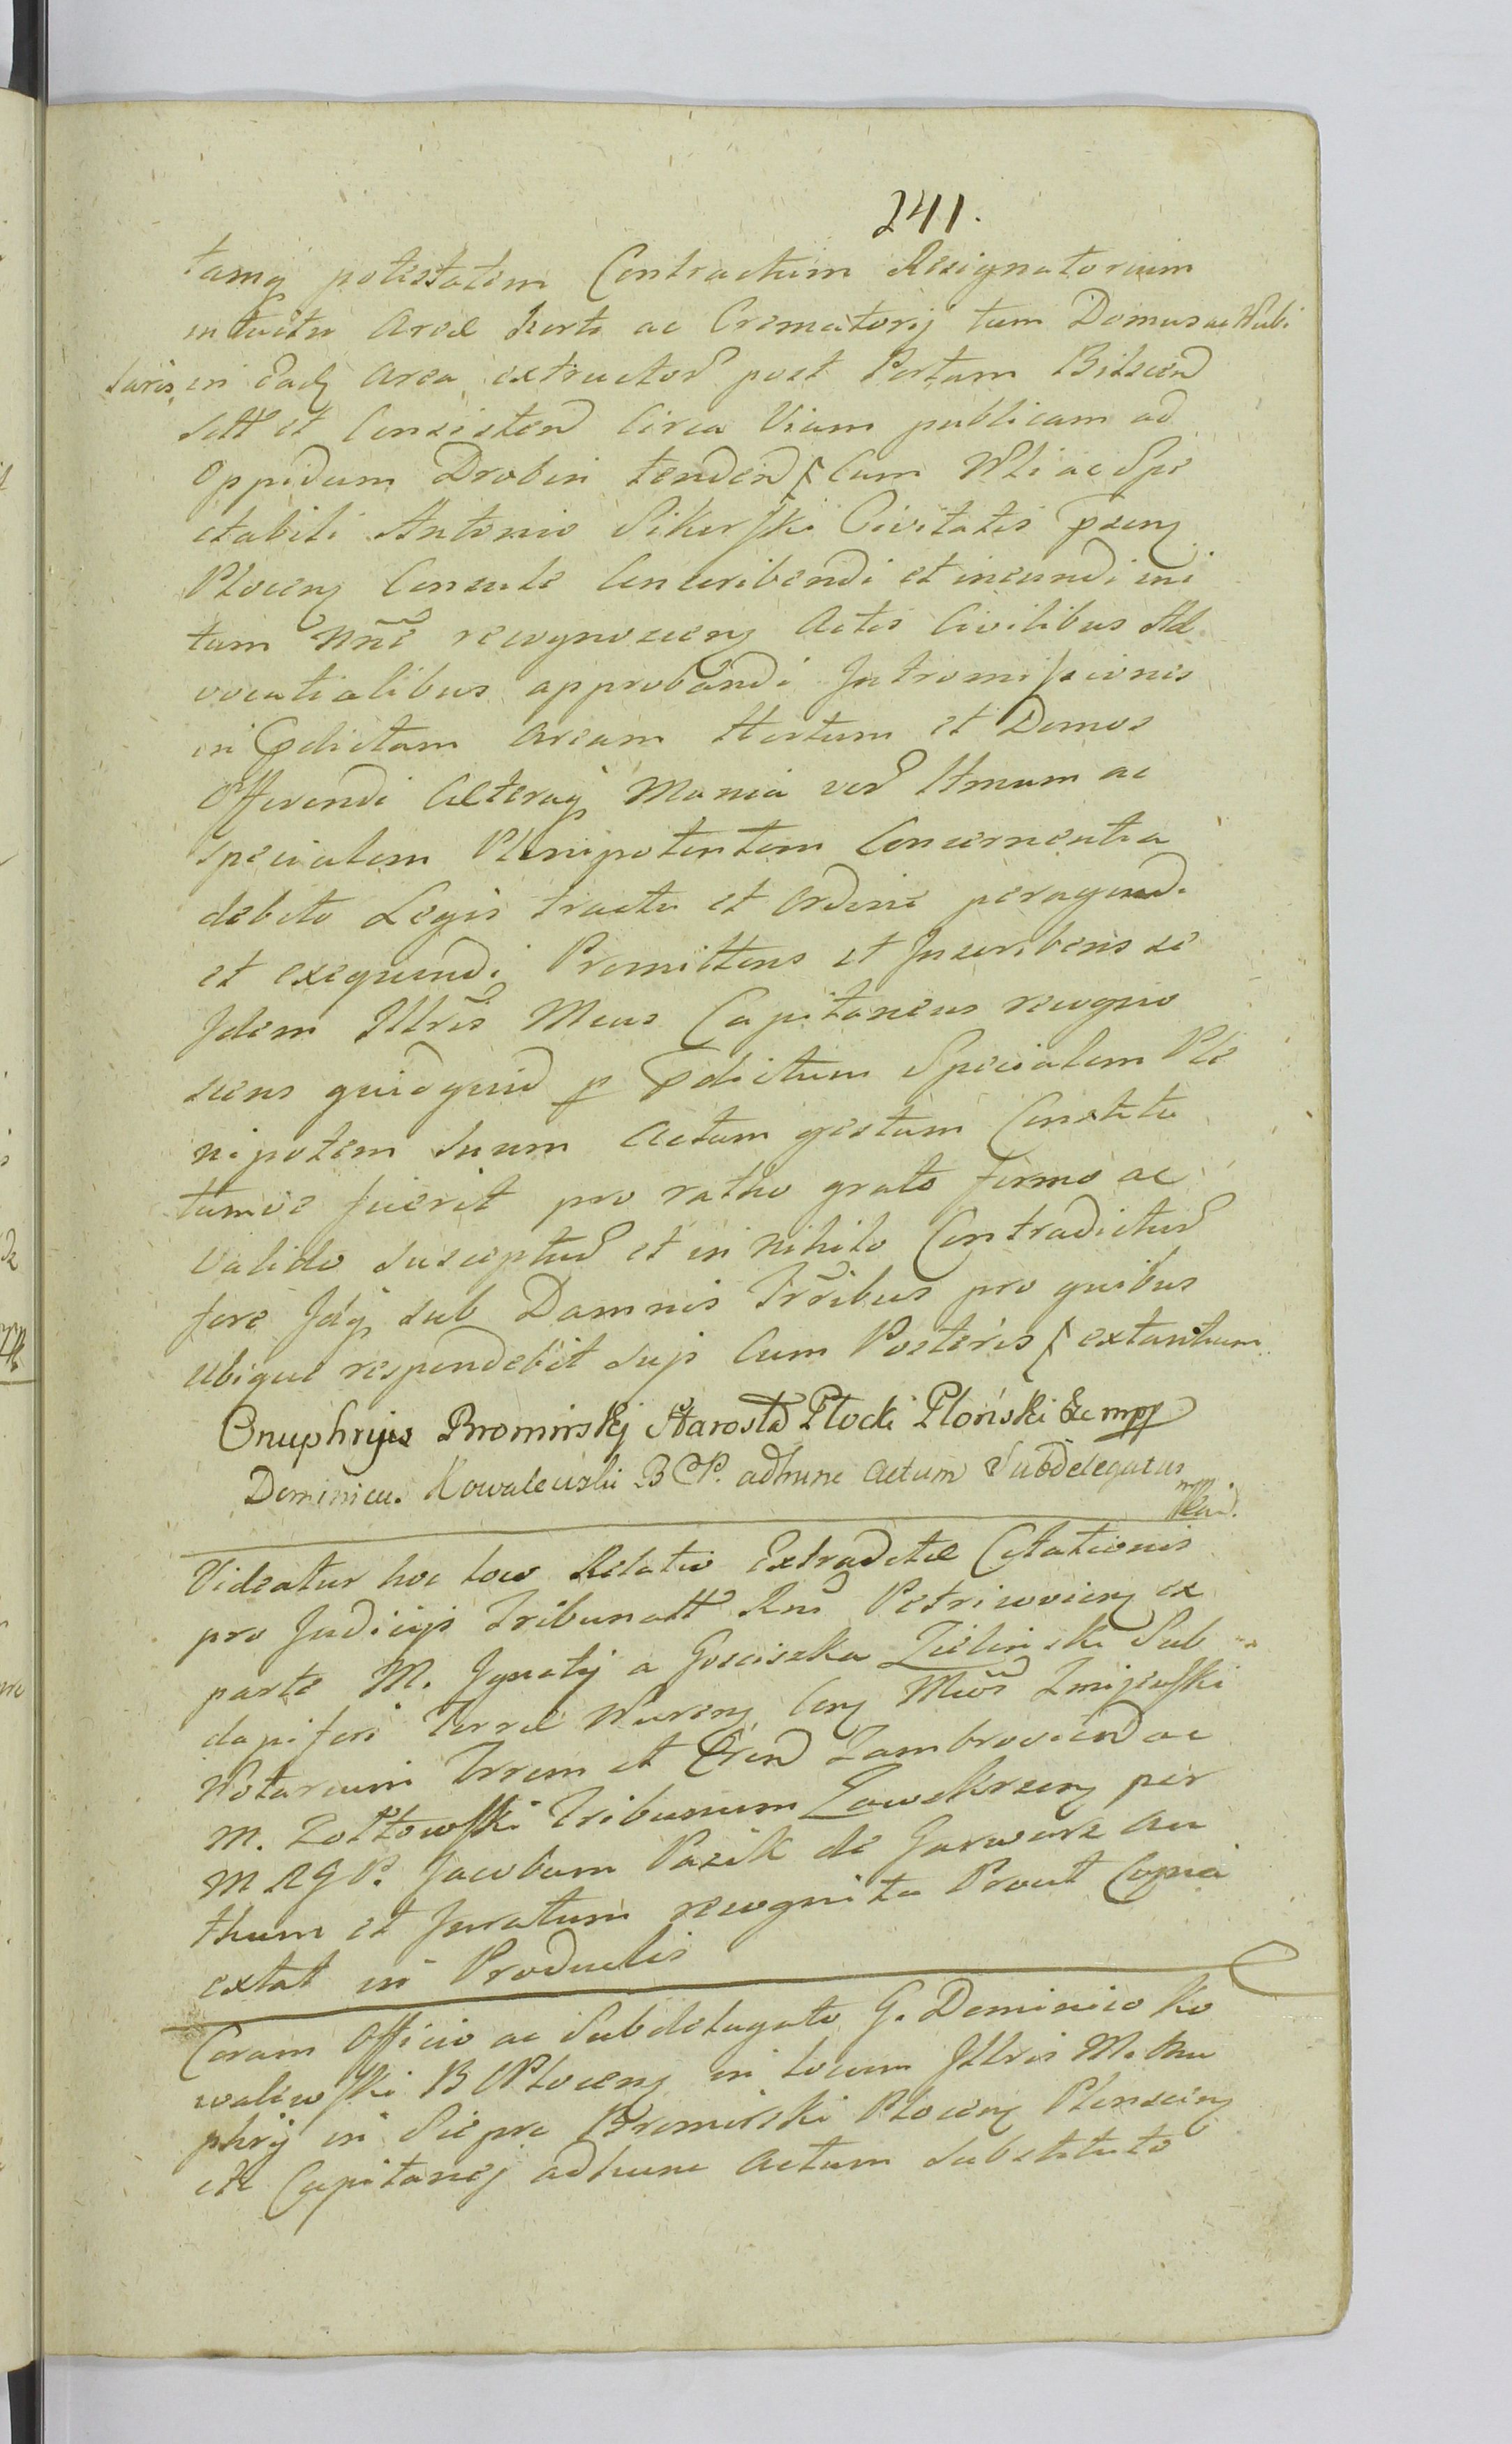 241.
tamq potestatem Contractum Resignatorium
intuitu Areæ horti ac Crematorij tum Domus ac Nubi
laris, in eadq Area extructoru post Portam Bilscen
sitt et Consisten Circa Viam publicam ad
Oppidum Drobin tenden Cum Nbli ac Spe
ctabili Antonio Sikorski Civitatis pren
Plocen Consule Conscribendi et ineundi ini
tum Nne recognoscen Actis Civilibus Ad
vocatialibus approbandi Intromissionis
in pdictam Aream Hortum et Domos
Offerendi Cæteraq Mania ver Itmum ac
Specialem Plenipotentem Concernentia
debito Legis tractu et Ordine peragend
et exequendi Promittens et Inscribens se
Idem Illris Mcus Capitaneus recogno
scens quidquid p pdictum Specialem Ple
nipotem Suum Actum gestum Constitu
tumve fuerit pro ratho grato firmo ac
valido Suscepturu et in nihilo Contradicturu
fore Idq sub Damnis Trribus pro quibus
ubique respondebit Suj Cum Posteris extantium
Onuphryus Bromirskj Starosta Płocki Płoński &c mpp
Dominicu. Kowalewski B C P. adhunc Actum Subdelegatus
mpp
Videatur hoc loco Relatio Extraditæ Citationis
pro Judicijs Tribunatt Rni Petricovien ex
parte M. Ignatij a Gosciszka Zielinski Sub
dapiferi Terræ Wwren Con Mcos Zmijewski
Notarium Trrem et Cren Zambrovien ac
M. Zołtowski Tribunum Zawskrzen per
M R G P. Jacobum Pazik de Garwarz Au
thum et Juratum recognita Prout Copia
extat in Productis
Coram Officio ac Subdelagato G. Dominico Ko
walewski B C Plocen in locum Illris M. Onu
phrij in Siepre Bromirski Plocen Plonscen
etc Capitanej adhunc Actum Substituto